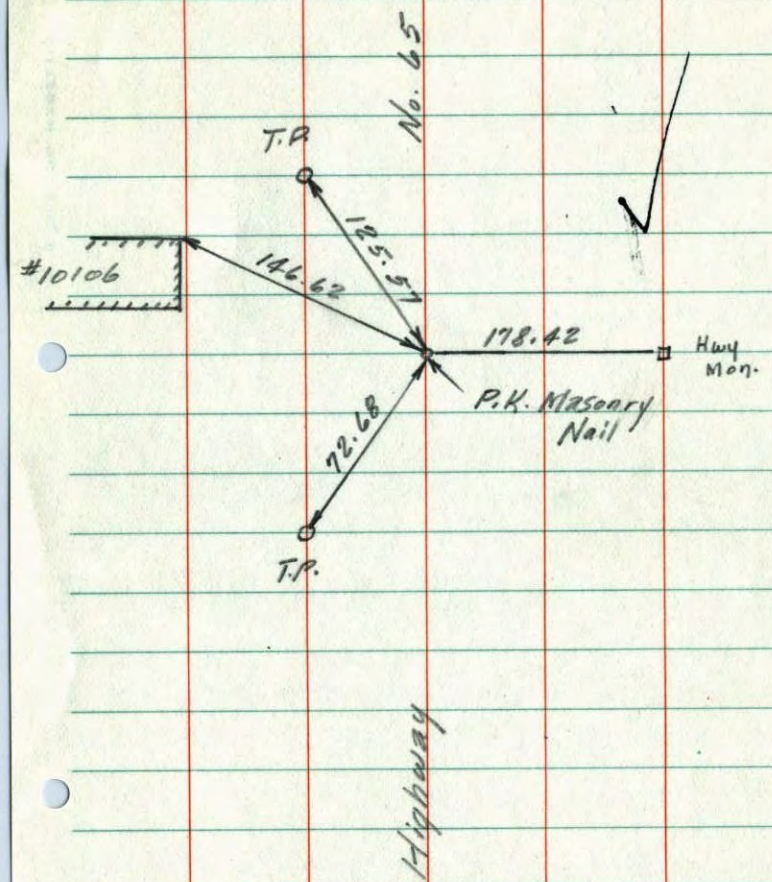 No. 65
T.P.
125.57
#10106
146.62
178.42
Hwy
Mon.
P.K. Masonry
Nail
72.68
T.P.
Highway